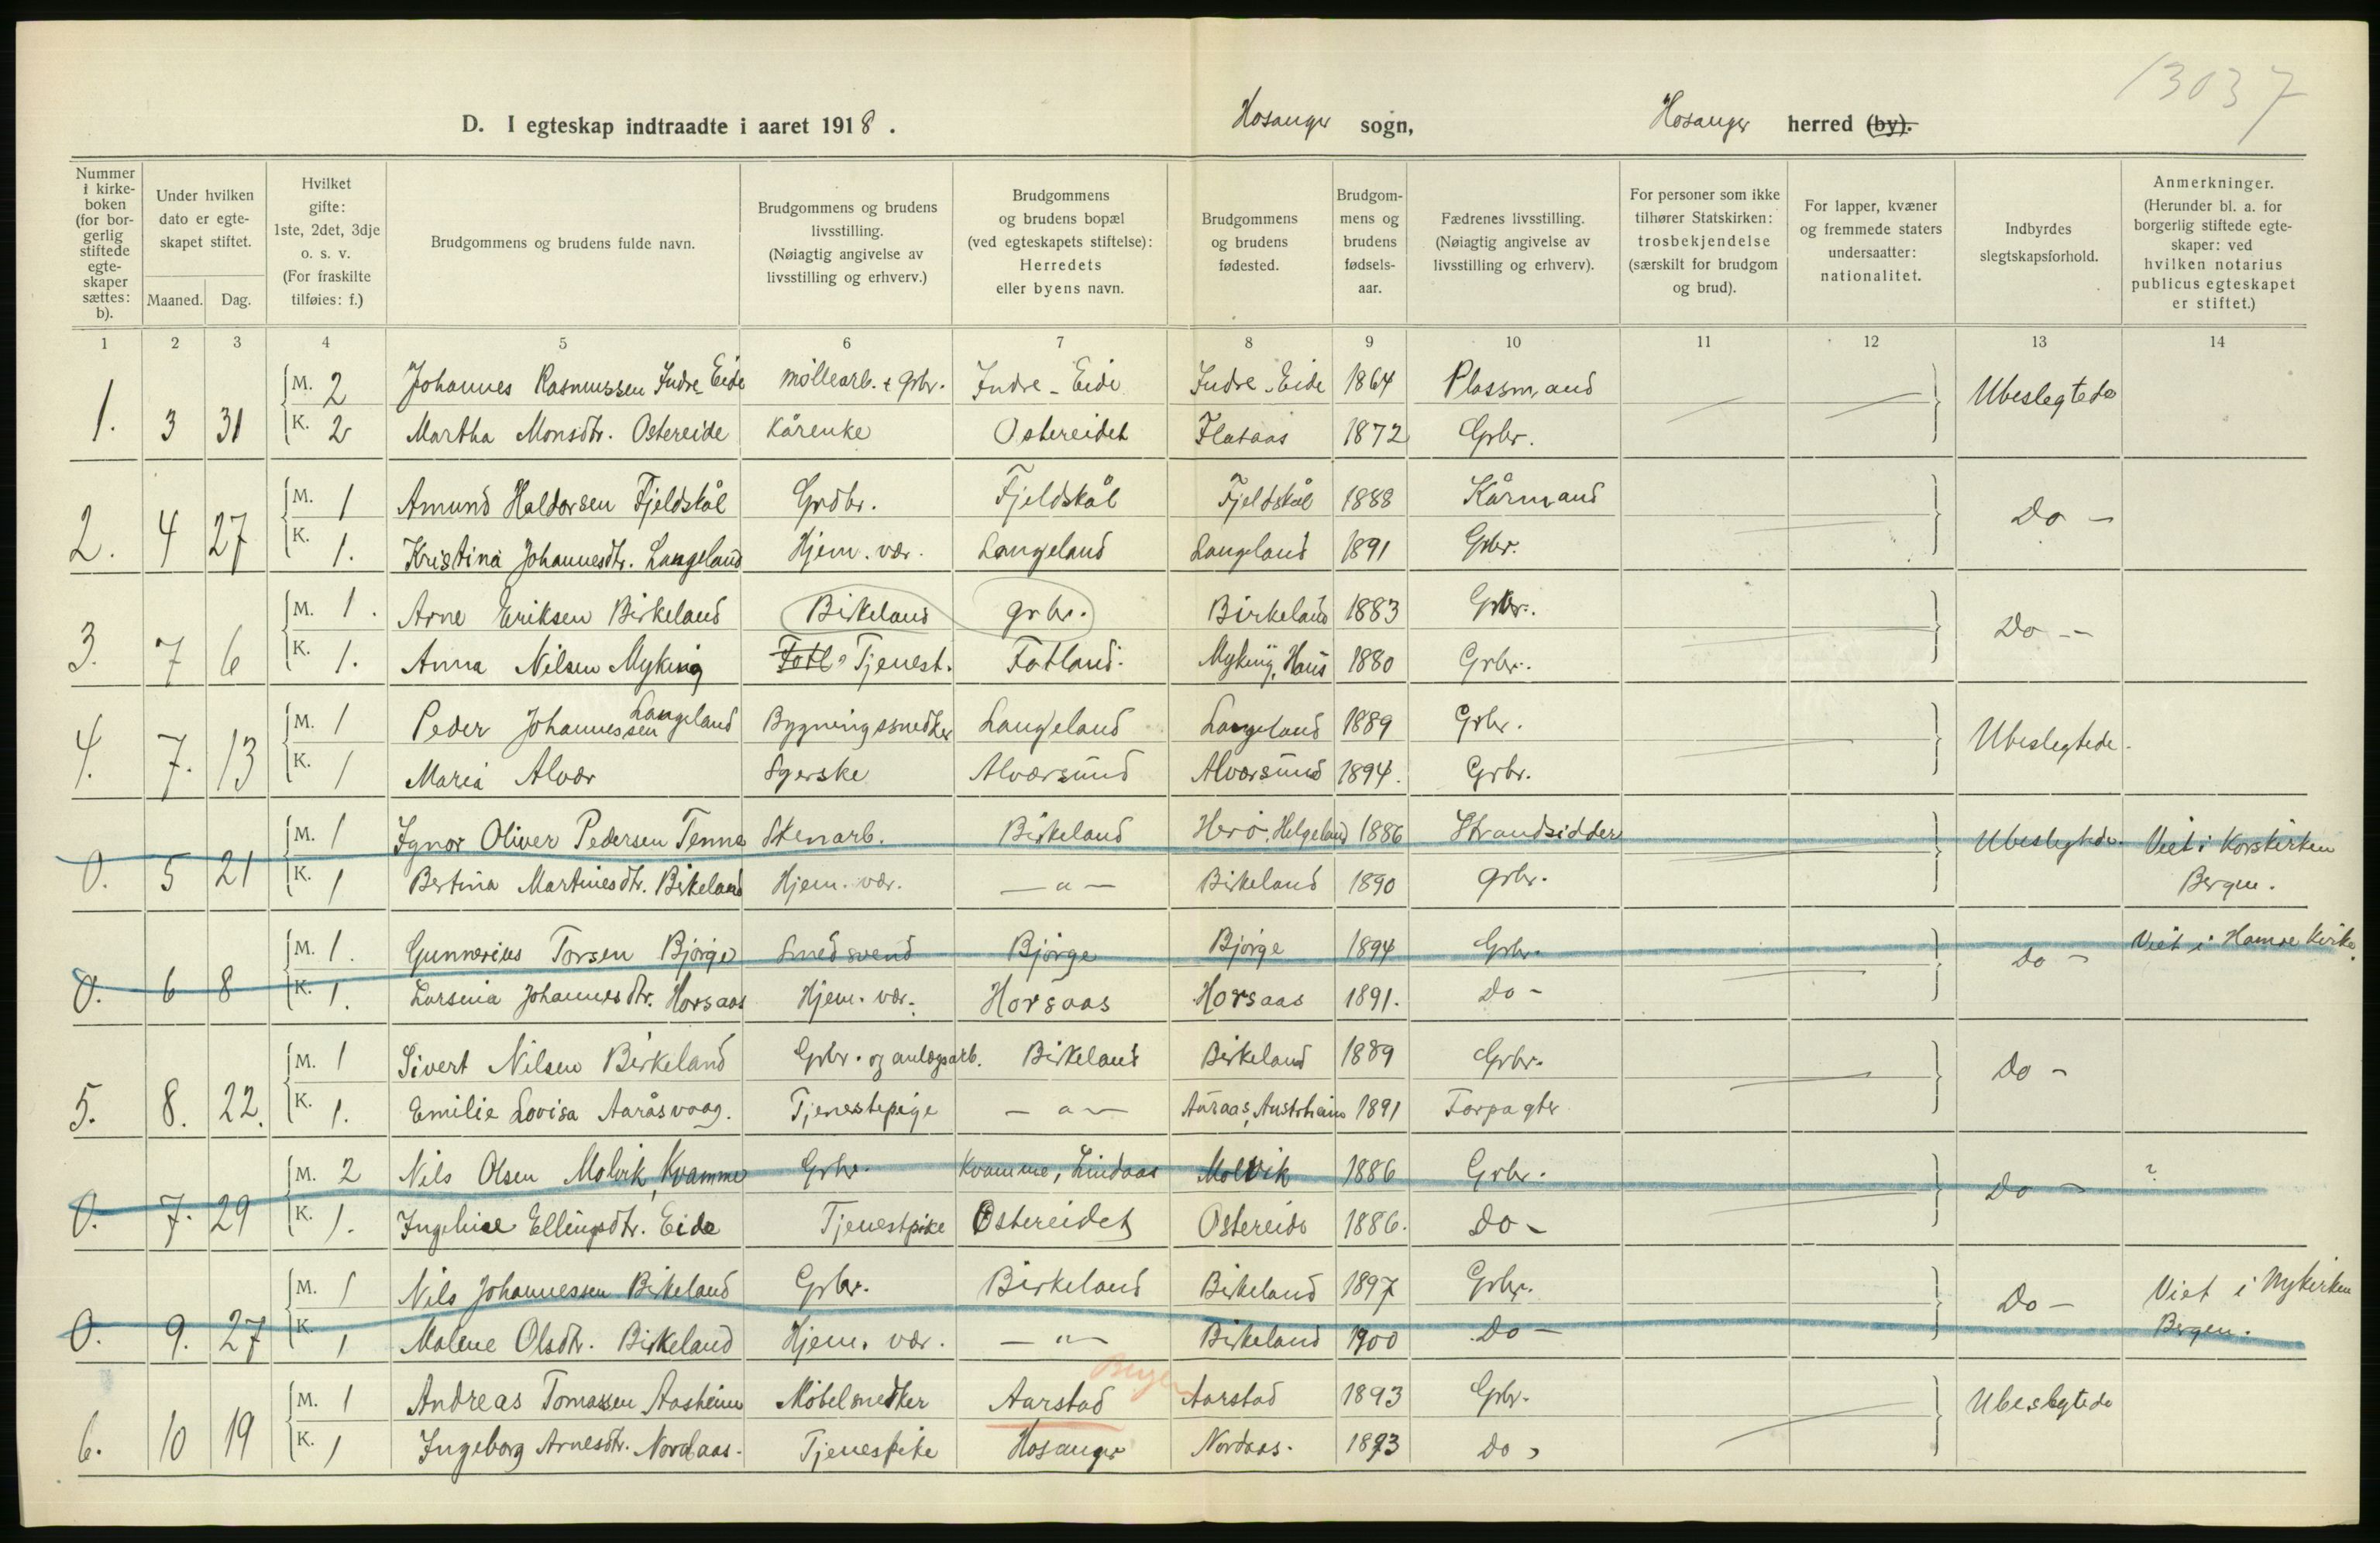 13037
D. I egteskap indtraadte i aaret 1918. Hosanger sogn, Hosanger herred (by).
Nummer i kirkeboken (for borgerlig stiftede egteskaper sættes: b).
Under hvilken dato er egteskapet stiftet.
Maaned. Dag.
Hvilket gifte: 1ste, 2det, 3dje o. s. v. (For fraskilte tilføies: f.)
Brudgommens og brudens fulde navn.
Brudgommens og brudens livsstilling. (Nøiagtig angivelse av livsstilling og erhverv.)
Brudgommens og brudens bopæl (ved egteskapets stiftelse): Herredets eller byens navn.
Brudgommens og brudens fødested.
Brudgommens og brudens fødselsaar.
Fædrenes livsstilling. (Nøiagtig angivelse av livsstilling og erhverv).
For personer som ikke tilhører Statskirken: trosbekjendelse (særskilt for brudgom og brud).
For lapper, kvæner og fremmede staters undersaatter: nationalitet.
Indbyrdes slegtskapsforhold.
Anmerkninger. (Herunder bl. a. for borgerlig stiftede egteskaper: ved hvilken notarius publicus egteskapet er stiftet.)
1 2 3 4 5 6 7 8 9 10 11 12 13 14
M. 2 Johannes Rasmussen Indre-Eide møllearb. + grbr. Indre-Eide Indre-Eide 1864 Plassmand
1. 3 31 Ubeslegtede
K. 2 Martha Monsdtr. Ostereide Kårenke Ostereidet Flataas 1872 Grbr.
M. 1 Amund Haldorsen Fjeldskål Grdbr. Fjeldskål Fjeldskål 1888 Kårmand
2. 4 27 Do -
K. 1. Kristina Johannesdtr. Langeland Hjem. vær. Langeland Langeland 1891 Grbr.
M. 1. Arne Eriksen Birkeland Birkeland grbr. Birkeland 1883 Grbr.
3. 7 6 Do --
K. 1. Anna Nilsen Myking Fotl Tjenest. Fotland. Myking, Haus 1880 Grbr.
M. 1 Peder Johannessen Langeland Bygningssnedker Langeland Langeland 1889 Grbr.
4. 7. 13 Ubeslegtede.
K. 1 Maria Alvær Syerske Alværsund Alværsund 1894. Grbr.
M. 1 Ignor Oliver Pedersen Tenna Stenarb. Birkeland Herø, Helgeland 1886 Strandsidder Ubeslegtede. Viet i Korskirken
0. 5 21
K. 1 Bertina Martinesdtr. Birkeland Hjem. vær. — " — Birkeland 1890 grbr. Bergen.
M. 1. Gunnerius Torsen Bjørge Smedsvend Bjørge Bjørge 1894 Grbr. Do - Viet i Hamre Kirke.
0. 6 8
K. 1. Larsina Johannesdtr. Horsaas Hjem. vær. Horsaas Horsaas 1891. Do -
M. 1 Sivert Nilsen Birkeland Grbr. og anlægsarb. Birkeland Birkeland 1889 Grbr.
5. 8. 22. Do -
K. 1. Emilie Lovisa Aaråsvaag. Tjenestepige — " — Aaraas, Austrheim 1891 Forpagter
M. 2 Nils Olsen Molvik, Kvamme Grbr. Kvamme, Lindaas Molvik 1886 Grbr. ?
0. 7. 29 Do -
K. 1. Ingeline Ellingsdtr. Eide Tjenestpike Ostereidet Ostereide 1886. Do -
M. 1 Nils Johannessen Birkeland Grbr. Birkeland Birkeland 1897 Grbr. Do - Viet i Nykirken
0. 9. 27
K. 1 Malene Olsdtr. Birkeland Hjem. vær. — " — Birkeland 1900 Do - Bergen.
Bergen
M. 1 Andreas Tomassen Aasheim Møbelsnedker Aarstad Aarstad 1893 Grbr. Ubeslegtede
6. 10 19
K. 1 Ingeborg Arnesdtr. Nordaas. Tjenestpike Hosanger Nordaas. 1893 Do